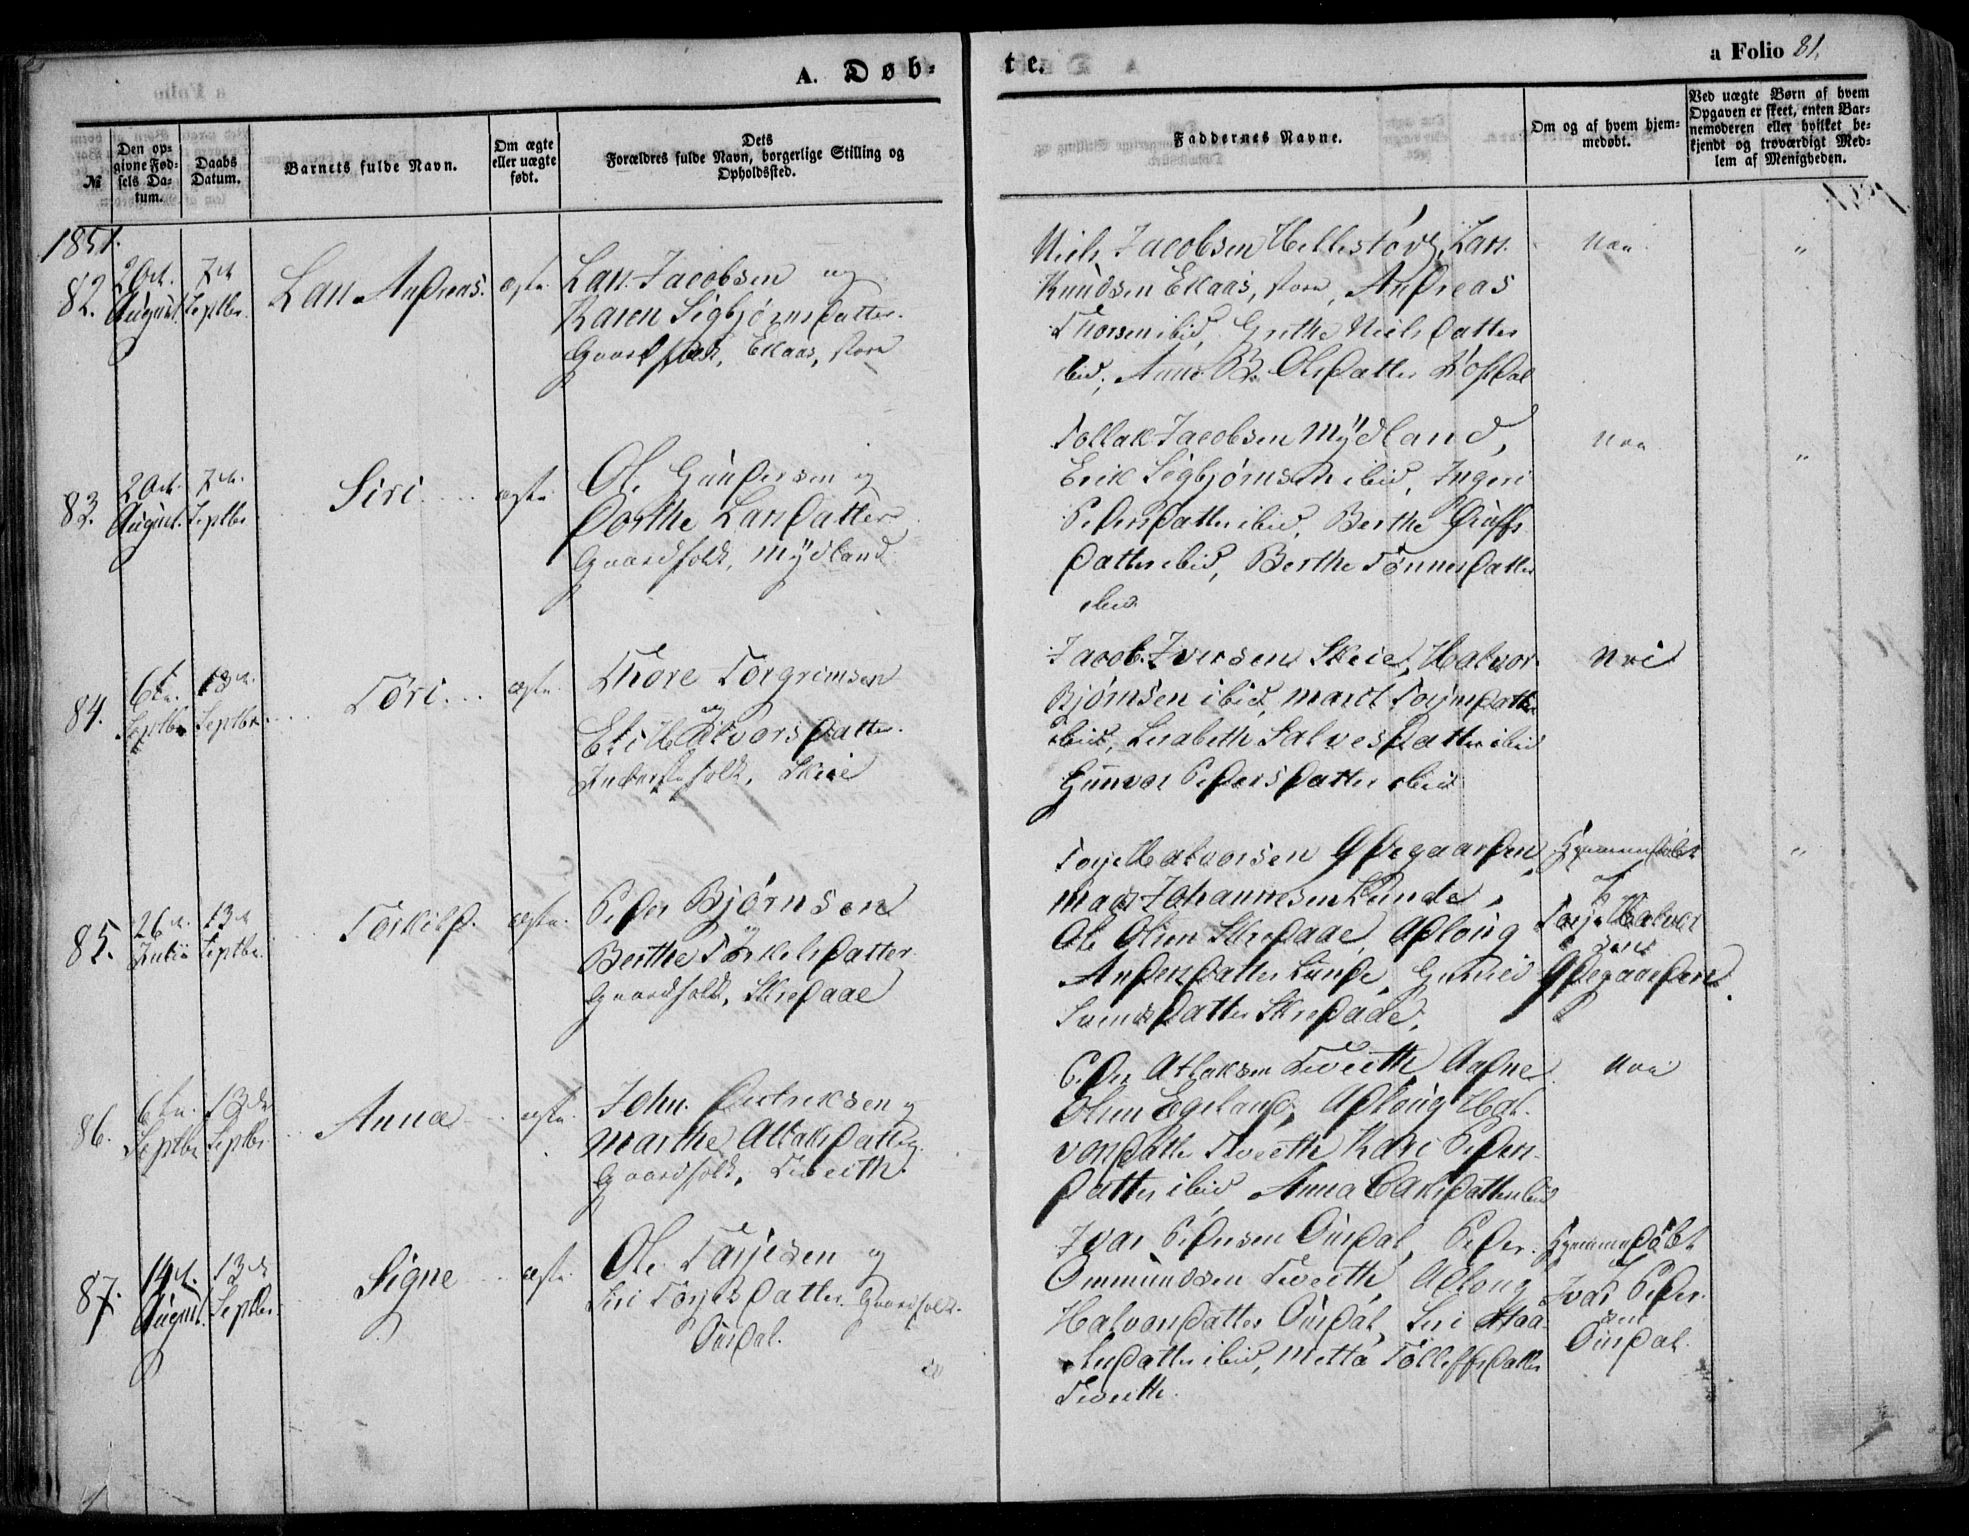 A. Døb-
te.
a Folio 81.
№
Den op-
givne Fød-
sels Da-
tum.
Daabs
Datum.
Barnets fulde Navn.
Om ægte
eller uægte
født.
Dets
Forældres fulde Navn, borgerlige Stilling og
Opholdssted.
Faddernes Navne.
Om og af hvem hjem-
medøbt.
Ved uægte Børn af hvem
Opgaven er skeet, enten Bar-
nemoderen eller hvilket be-
kjendt og troværdigt Med-
lem af Menigheden.
1851.
82.
20de
August.
7de
Septbr.
Lars Andreas.
ægte
Lars Jacobsen og
Karen Sigbjørnsdatter.
Gaardfolk, Eklaas, store
Niels Jacobsen Hellestørl, Lars
Knudsen Eklaas, store, Andreas
Thorsen ibid, Grethe Nielsdatter
ibid, Anne B. Olsdatter
Nei
"
83.
20de
August.
7de
Septbr
Siri
ægte
Ole Gundersen og
Dorthe Larsdatter
Gaardfolk, Mydland
Tollak Jacobsen Mydland,
Erik Sigbjørnsen ibid, Ingeri
Pedersdatter ibid, Berthe
datter ibid, Berthe Tønnesdatter
ibid
Nei
"
84.
6te
Septbr
13de
Septbr.
Tori
ægte
Thore Torgrimsen
og
Eli Halvorsdatter.
Inderstefolk, Skeie
Jacob Iversen Skeie, Halvor
Bjørnsen ibid, Marit datter
ibid, Lisabeth Salvesdatter ibid
Gunvor Pedersdatter ibid
Nei
85.
26de
Julii
13de
Septbr.
Torkild.
ægte.
Peder Bjørnsen
og
Berthe Torkelsdatter
Gaardfolk, Skredaae
Torje Halvorsen Ødegaarden,
Mads Johannesen Lunde,
Ole Olsen Skredaae, Adloug
Andersdatter Lunde,
Svendsdatter Skredaae.
Hjemmedøbt
af
Torje Halvor
sen
Ødegaarden.
"
86.
6te
Septbr
13de
Septbr.
Anna
ægte
John Didriksen og
Marthe Atlaksdatter
Gaardfolk, Tveith
Peder Atlaksen Tveith, Aadne
Olsen Egeland, Adloug Hal-
vorsdatter Tveith, Kari Peders-
datter ibid, Anna Larsdatter ibid
Nei
87.
14de
August.
13de
Septbr.
Signe
ægte
Ole Tarjesen og
Siri Torjesdatter. Gaardfolk.
Ousdal.
Ivar Pedersen Ousdal, Peder
Ommundsen Tveith, Adloug
Halvorsdatter Ousdal, Siri
datter ibid, Mette Tolleffsdatter
Tveith.
Hjemmedøbt
af
Ivar Peder-
sen
Ousdal.